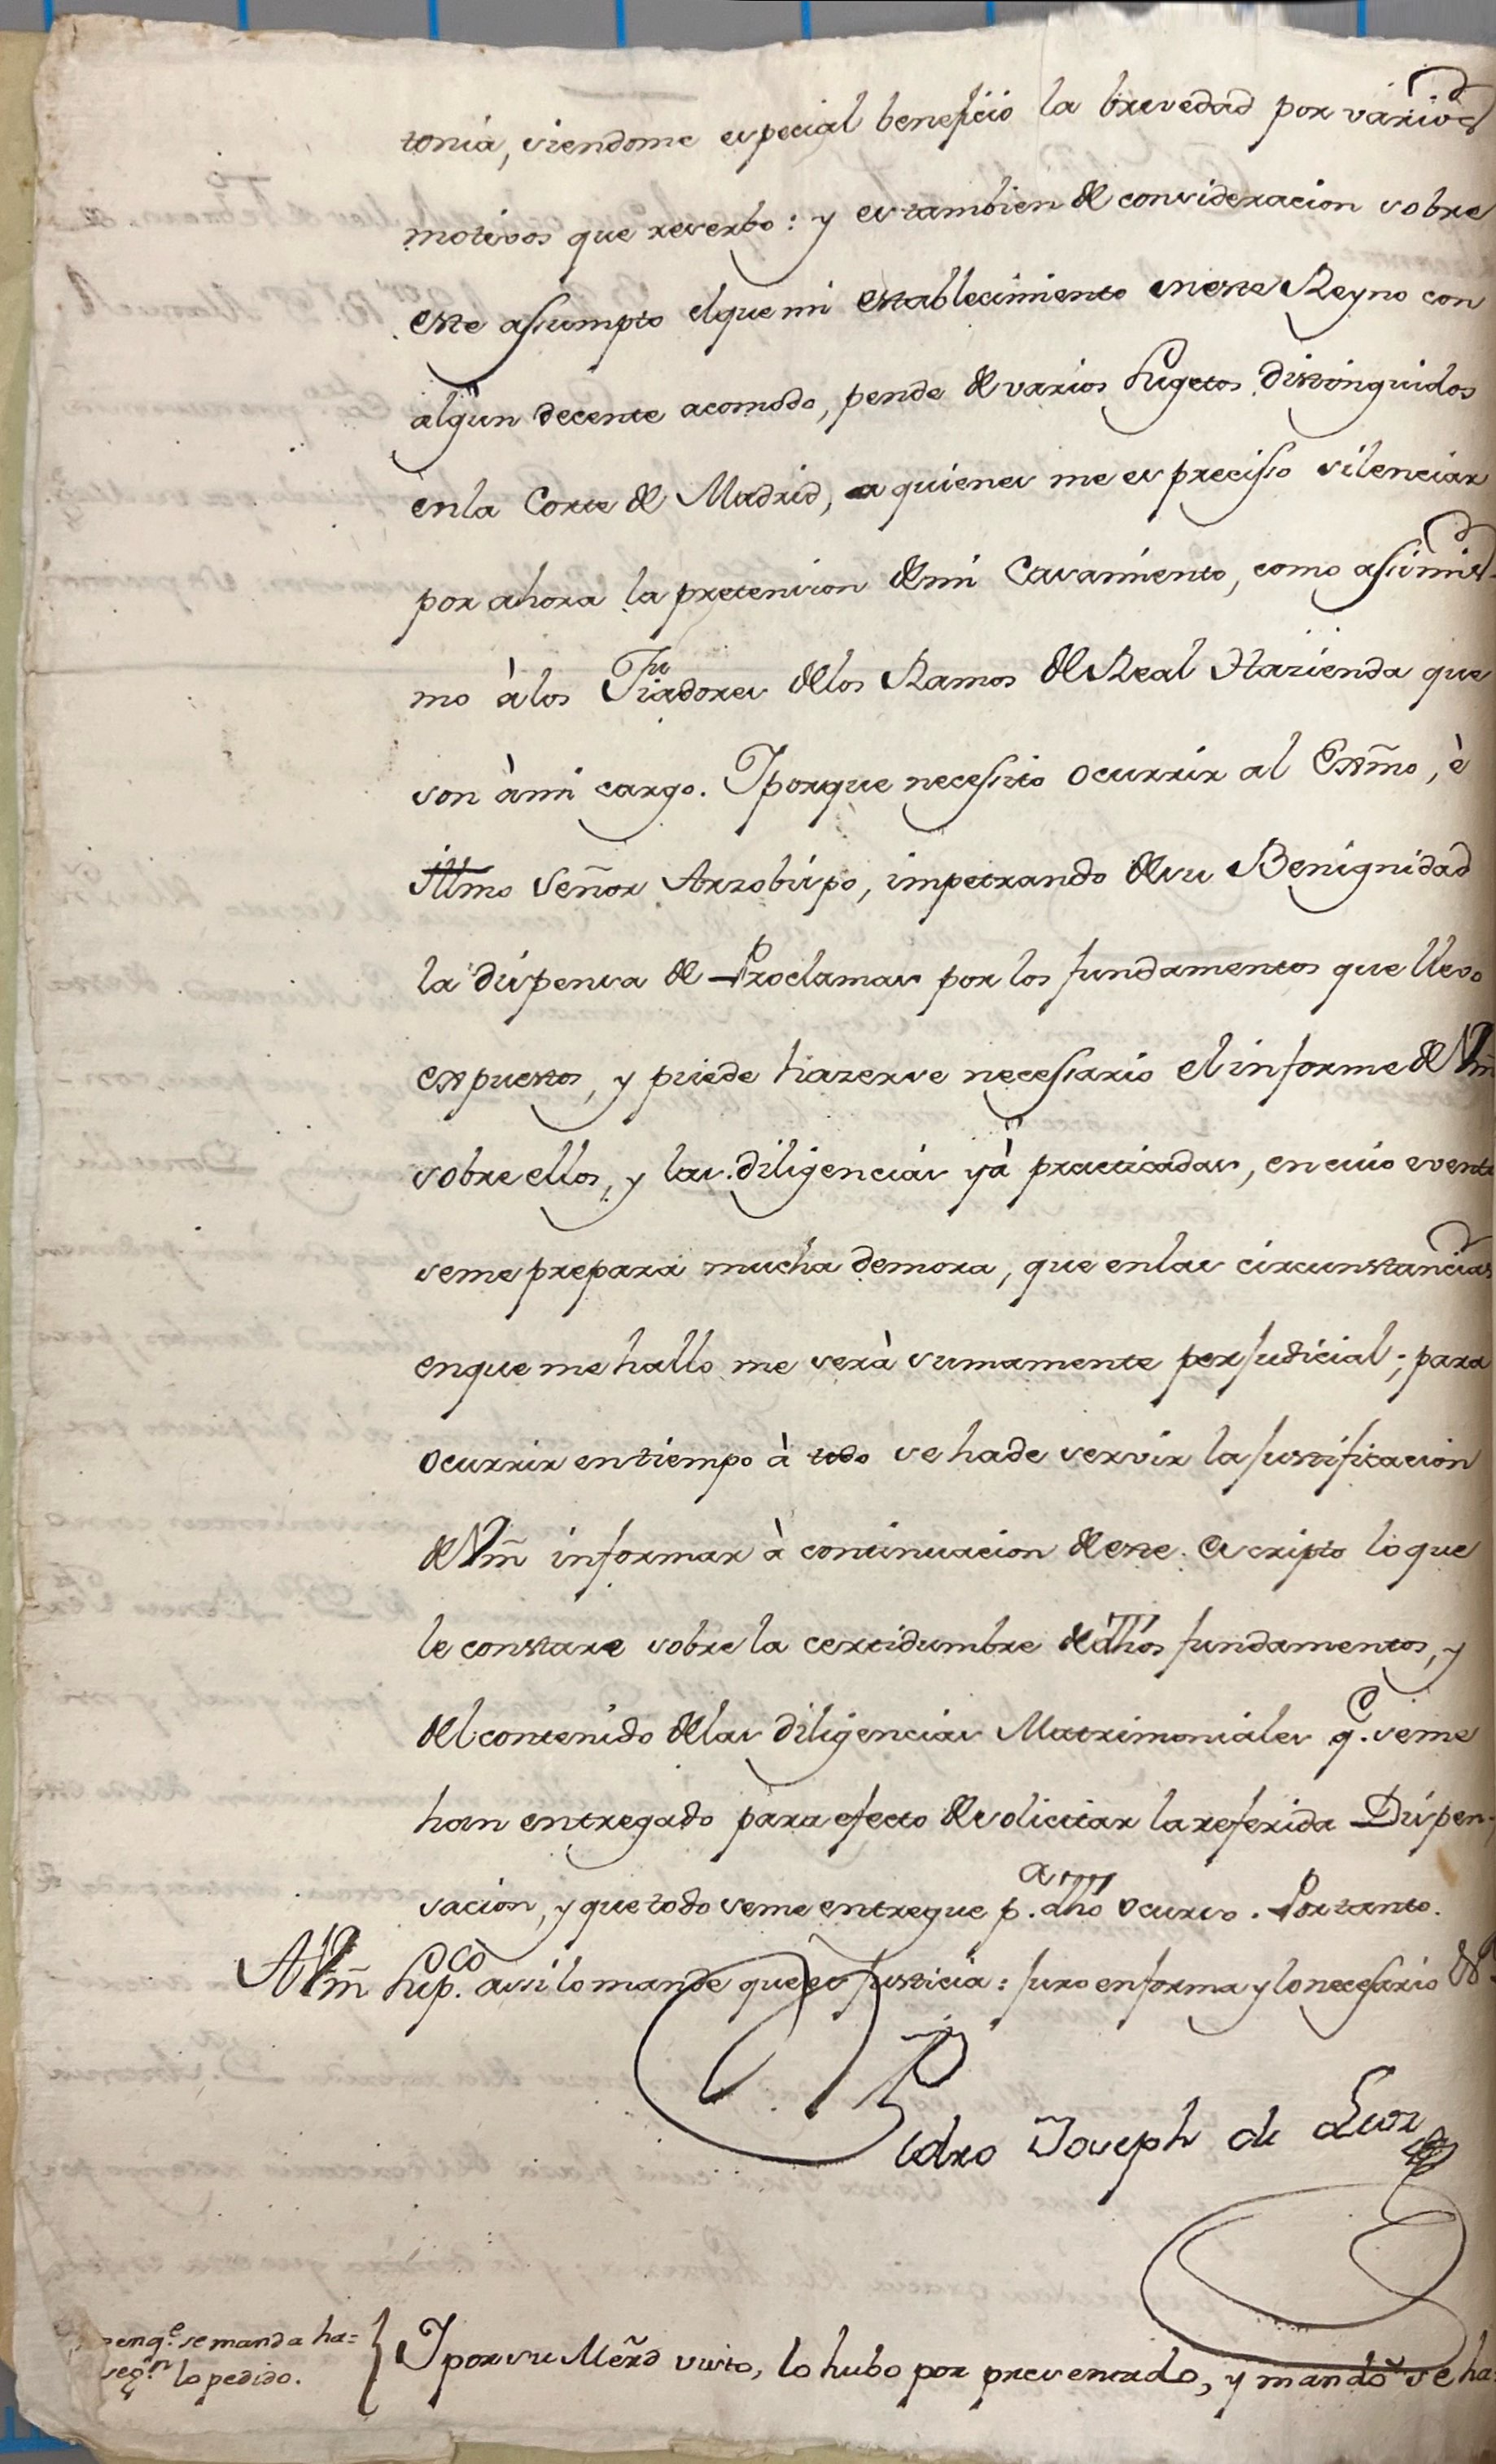 tonia, siendome especial beneficio la brevedad por varios
motivos que reserbo: y es tambien de consideracion sobre
este assumpto el que mi establecimiento en este Reyno con
algun decente acomodo, pende de varios Sugetos distinguidos
en la Corte de Madrid, a quienes me es precisso silenciar
por ahora la pretension de mi Casamiento, como assimis-
mo à los Fiadores de los Ramos de Real Hazienda que
son à mi cargo. Y porque necessito ocurrir al Exmo, è
Illmo Señor Arzobispo, impetrando de su Benignidad
la dispensa de Proclamas por los fundamentos que llevo
expuestos, y puede hazerse necessario el informe de Vm
sobre ellos, y las diligencias yà practicadas, en cuio evento
se me prepara mucha demora, que en las circunstancias
en que me hallo me serà sumamente perjudicial; para
ocurrir en tiempo à todo se ha de servir la justificacion
de Vm̃ informar à continuacion de este escripto lo que
le constare sobre la certidumbre de dhos fundamentos, y
del contenido de las diligencias Matrimoniales q.e se me
han entregado para efecto de solicitar la referida Dispen-
sacion, y que todo se me entregue p.a dho ocurso. Por tanto.
A Vm̃ Sup.co assi lo mande que es justicia: juro en forma y lo necessario &.
Pedro Joseph de Leoz
en q.e se manda ha=
seg.n lo pedido.
Y por su Merd visto, lo hubo por presentado, y mandò se ha=